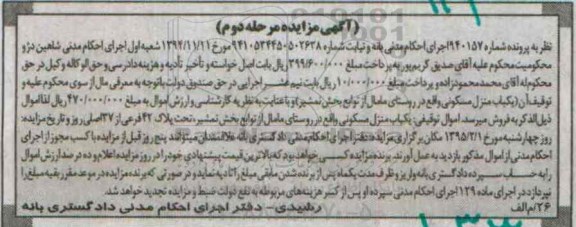 (آگهی مزایده مرحله دوم)
نظر به پرونده شماره ۹۴۰۱۵۷ اجرای احکام مدنی بانه و نیابت شماره ۹۴۱۰۵۳۴۴۵۰۵۰۲۶۳۸ مورخ ۱۳۹۴/۱۱/۱۱ شعبه اول اجرای احکام مدنی شاهین دژ و
محکومیت محکوم علیه آقای صدیق کریم پور به پرداخت مبلغ ۳۹۹/۶۰۰/۰۰۰ ریال بابت اصل خواسته و تأخیر تأدیه و هزینه دادرسی و حق الوکاله وکیل در حق
محکوم له آقای محمد محمودزاده و پرداخت مبلغ ۱۰/۰۰۰/۰۰۰ ریال بابت نیم عشر اجرایی در حق صندوق دولت با توجه به معرفی مال از سوی محکوم علیه و
توقیف آن (یکباب منزل مسکونی واقع در روستای مامال از توابع بخش نمشیر) و با عنایت به نظریه کارشناسی و ارزش اموال به مبلغ ۴۷۰/۰۰۰/۰۰۰ ریال لذا اموال
ذیل الذکر به فروش میرسد. اموال توقیفی: یکباب منزل مسکونی واقع در روستای مامال از توابع بخش نمشیر، تحت پلاک ۴۲ فرعی از ۳۷ اصلی روز و تاریخ مزایده:
روز چهارشنبه مورخ ۱۳۹۵/۲/۱ مکان برگزاری مزایده: دفتر اجرای احکام مدنی دادگستری بانه علاقمندان میتوانند پنج روز قبل از مزایده با کسب مجوز از اجرای
احکام مدنی از اموال مذکور بازدید به عمل آورند. برنده مزایده کسی خواهد بود که بالاترین قیمت پیشنهادی خود را در روز مزایده اعلام و ده درصد ارزش اموال
را به حساب سپرده دادگستری بانه واریز و ظرف مدت یکماه پس از برنده شدن مابقی مبلغ را تادیه نماید و در صورتی که برنده مزایده در موعد مقرر بقیه مبلغ را
نپردازد در اجرای ماده ۱۲۹ اجرای احکام مدنی سپرده او پس از کسر هزینه های مربوطه به نفع دولت ضبط و مزایده تجدید خواهد شد.
۲۶/م الف رشیدی- دفتر اجرای احکام مدنی دادگستری بانه